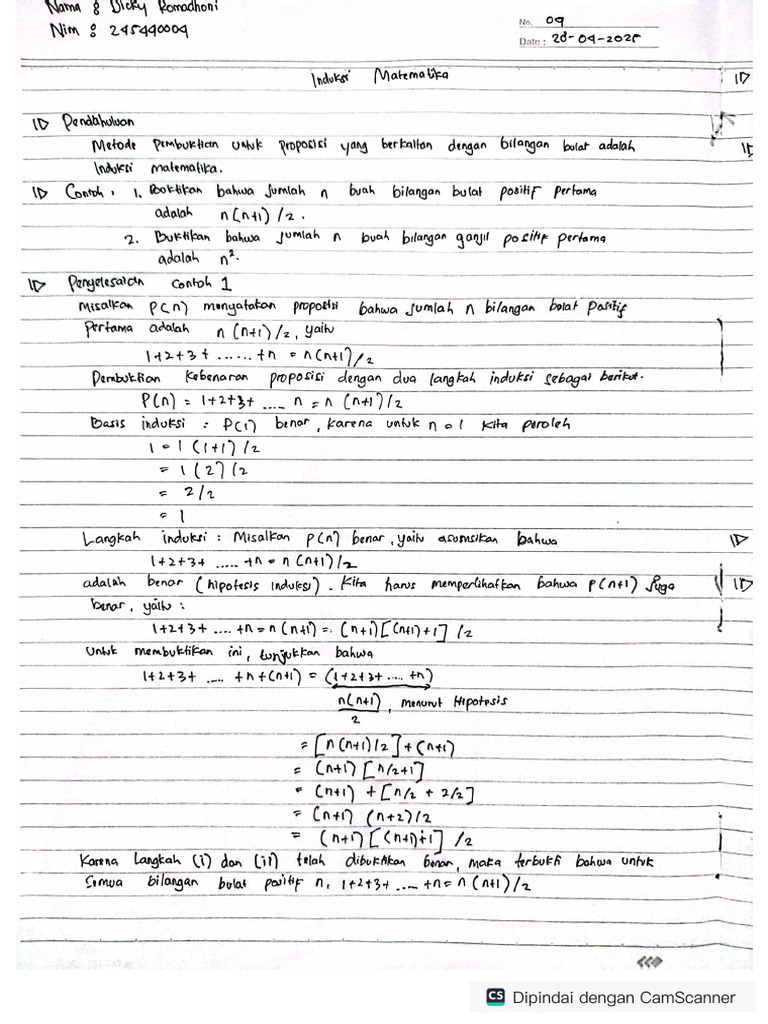 Nama : Dicky Romadhoni
No. 09
Nim : 245490009
Date : 28-09-2025
Induksi Matematika
Pendahuluan
Metode pembuktian untuk proposisi yang berkaitan dengan bilangan bulat adalah
Induksi matematika.
Contoh : 1. Buktikan bahwa jumlah n buah bilangan bulat positif pertama
adalah n(n+1)/2.
2. Buktikan bahwa jumlah n buah bilangan ganjil positif pertama
adalah n².
Penyelesaian Contoh 1
Misalkan P(n) menyatakan proposisi bahwa jumlah n bilangan bulat positif
Pertama adalah n(n+1)/2, yaitu
1+2+3+ ...... +n = n(n+1)/2
Pembuktian kebenaran proposisi dengan dua langkah induksi sebagai berikut.
P(n) = 1+2+3+ .... n = n (n+1)/2
Basis induksi : P(1) benar, karena untuk n=1 kita peroleh
1 = 1 (1+1)/2
= 1(2)/2
= 2/2
= 1
Langkah induksi : Misalkan P(n) benar, yaitu asumsikan bahwa
1+2+3+ ..... +n = n(n+1)/2
adalah benar (hipotesis induksi). Kita harus memperlihatkan bahwa P(n+1) juga
benar, yaitu :
1+2+3+ .... +n = n(n+1) = (n+1)[(n+1)+1] /2
Untuk membuktikan ini, tunjukkan bahwa
1+2+3+ .... +n+(n+1) = (1+2+3+ .... +n)
n(n+1)/2, menurut Hipotesis
= [n(n+1)/2]+(n+1)
= (n+1) [n/2+1]
= (n+1) + [n/2 + 2/2]
= (n+1) (n+2)/2
= (n+1) [(n+1)+1] /2
Karena langkah (i) dan (ii) telah dibuktikan benar, maka terbukti bahwa untuk
Semua bilangan bulat positif n, 1+2+3+ .... +n = n(n+1)/2
CS Dipindai dengan CamScanner